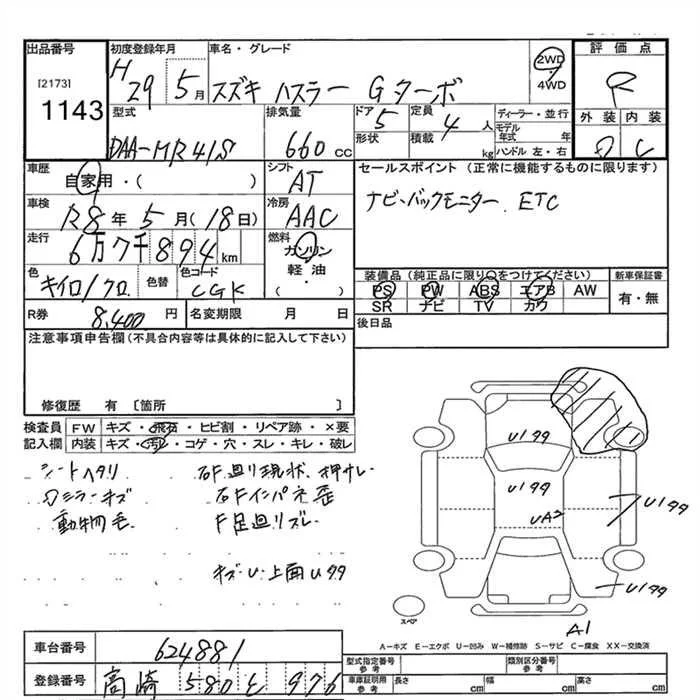 出品番号 初度登録年月 車名・グレード 評価点
[2173] H29 5月 スズキ ハスラー Gターボ 2WD 4WD R
1143
型式 排気量 ドア 定員 ディーラー・並行 外装 内装
DAA-MR41S 660 CC 5 4人 モデル年式 年 C
形状 積載 kg ハンドル 左・右
車歴 自家用・( ) シフト AT セールスポイント (正常に機能するものに限ります)
車検 R8年 5月(18日) 冷房 AAC ナビ、バックモニター ETC
走行 6万7千894km 燃料 ガソリン
軽油・( )
色 キイロ/クロ 色替 色コード CGK
装備品(純正品に限り○をつけてください) 新車保証書
PS PW ABS エアB AW 有・無
SR ナビ TV カワ
R券 8,400円 名変期限 月 日 後日品
注意事項申告欄(不具合内容等は具体的に記入して下さい)
修復歴 有 [箇所 ]
検査員 FW キズ・飛石・ヒビ割・リペア跡・×要
記入欄 内装 キズ・汚れ・コゲ・穴・スレ・キレ・破レ
シートヘタリ 右F廻り現状、押サレ
ミラーキズ 右Fインパネ歪
動物毛 F足廻リズレ
キズU・上面U99
U199
U199
UA2
U199
U199
A1
スペア
A-キズ E-エクボ U-凹み W-補修跡 S-サビ C-腐食 XX-交換済
車台番号 624881
型式指定番号 参考 類別区分番号 参考
登録番号 高崎 580 と 976
車庫証明用 参考 長さ cm 幅 cm 高さ cm